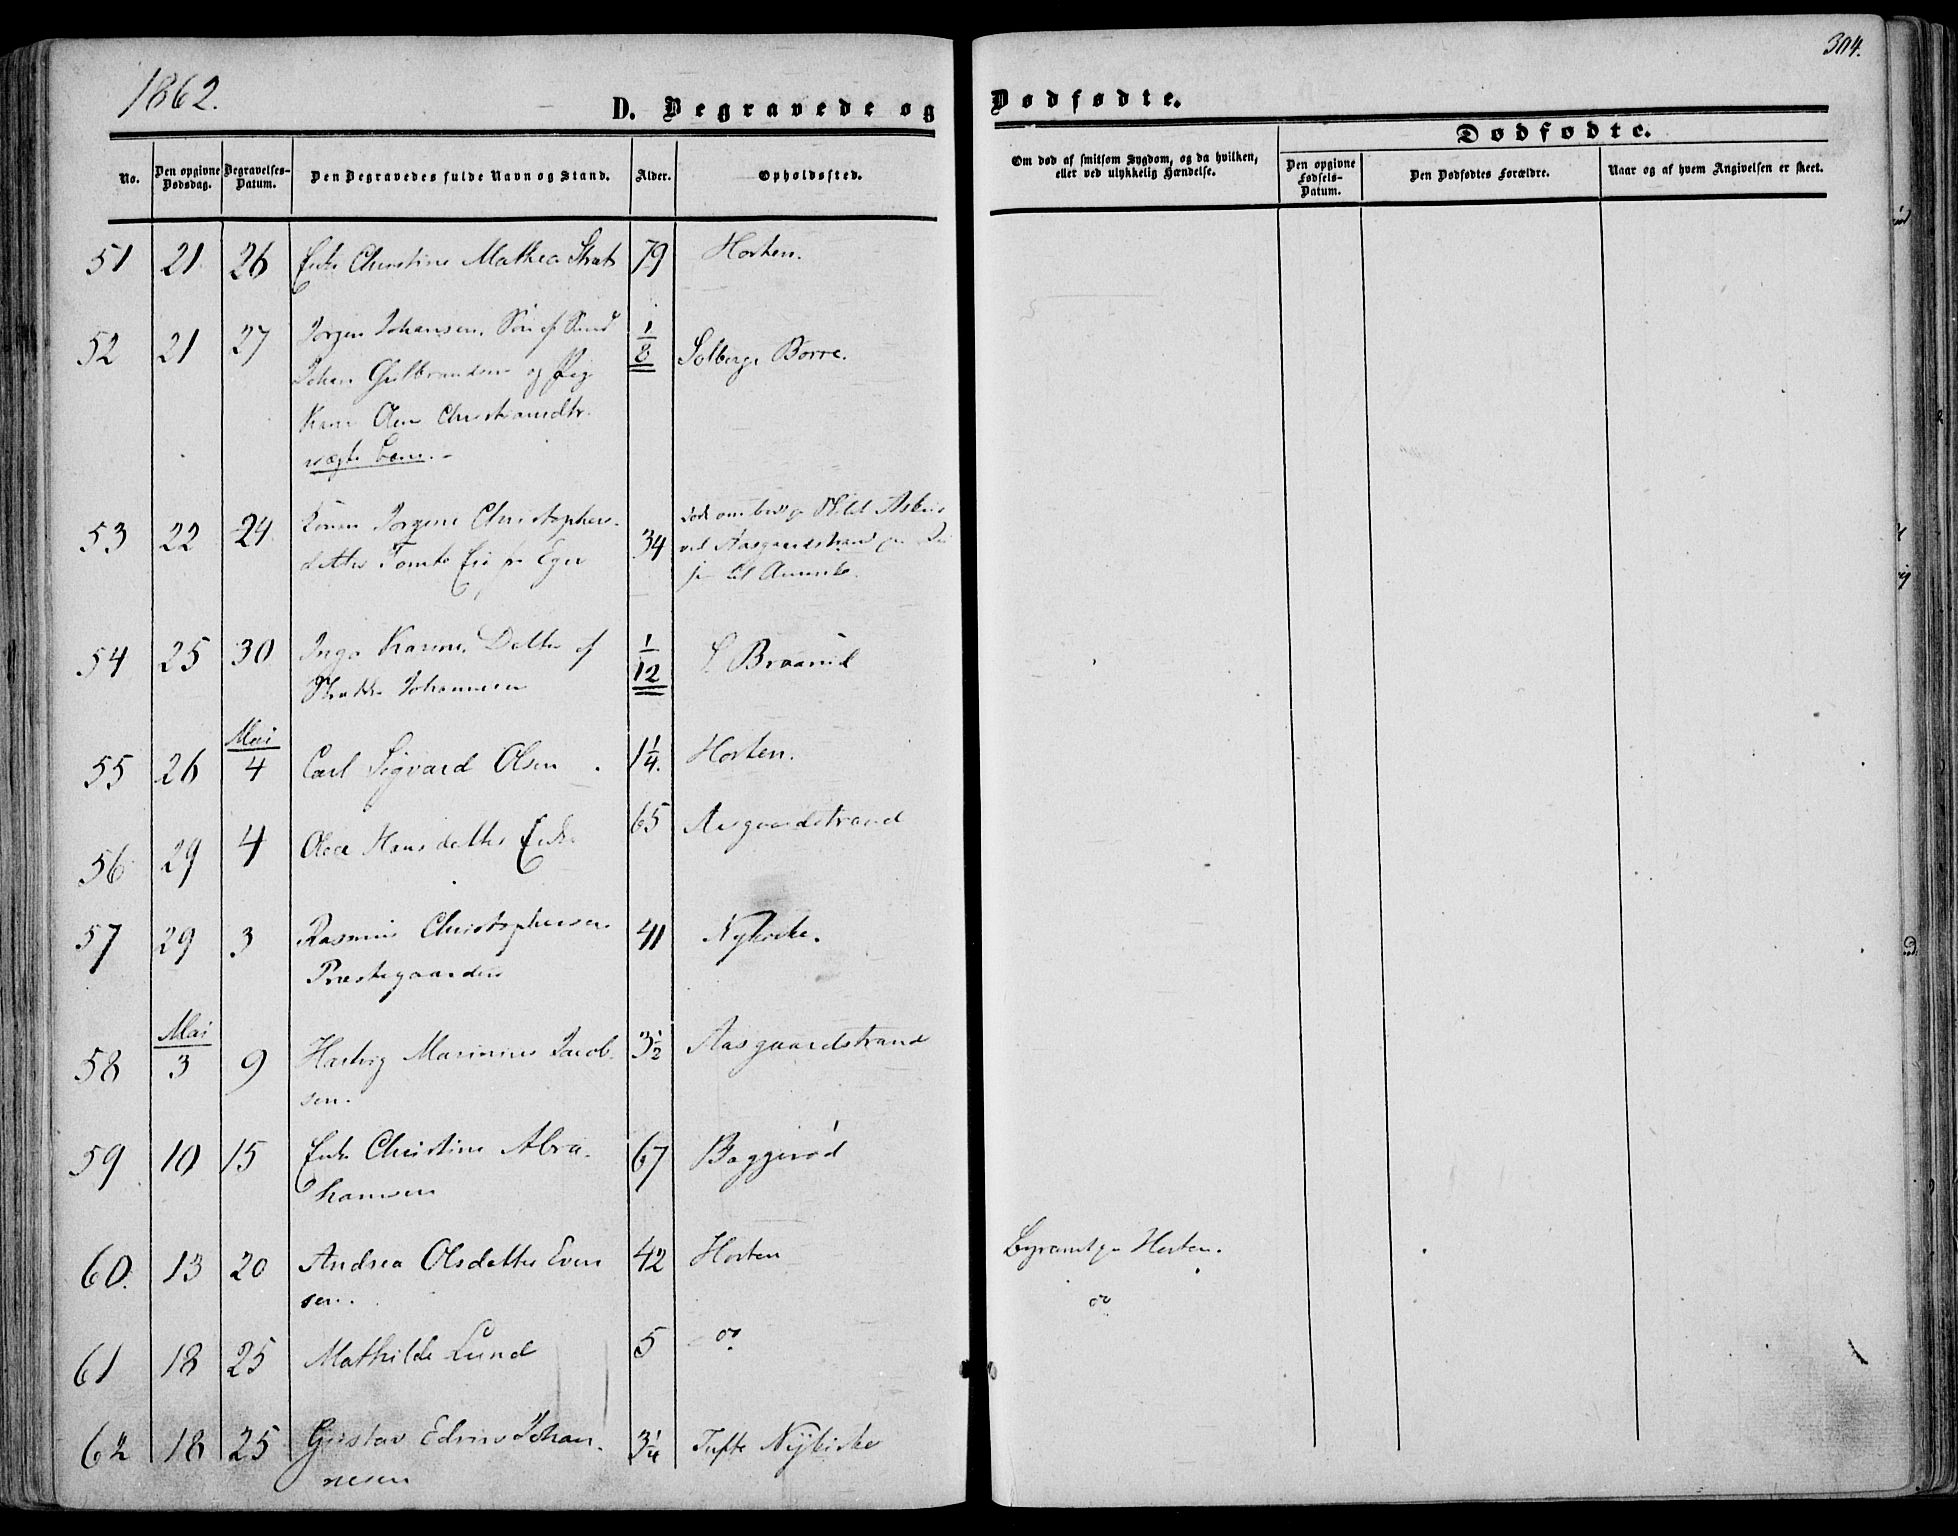 304.
1862.
D. Begravede og Dødfødte.
Dødfødte.
No.
Den opgivne Dødsdag.
Begravelses-Datum.
Den Begravedes fulde Navn og Stand.
Alder.
Opholdssted.
Om død af smitsom Sygdom, og da hvilken, eller ved ulykkelig Hændelse.
Den opgivne Fødsels-Datum.
Den Dødfødtes Forældre.
Naar og af hvem Angivelsen er skeet.
51 21 26 Enke Christine Mathea 79 Horten.
52 21 27 Jorgen Johansen. Søn af 1/8 Solberg Borre.
Johan Gulbrandsen og Pig
Olea Christiansdtr.
uægte Barn.
53 22 24 Konen Jorgine Christophers- 34
datter Eie fra Eger ved Aasgaardstrand
til
54 25 30 Inga Karine Datter af 1/12 Braarud
Johannesen
Mai
55 26 4 Carl Sigvard Olsen 1 1/4. Horten.
56 29 4 Olea Hansdatter Enke 65 Aasgaardstrand
57 29 3 Rasmus Christophersen 41 Nykirke.
Præstegaarden
Mai
58 3 9 Hartvig Marinius Jacob- 3 1/2 Aasgaardstrand
sen.
59 10 15 Enke Christine Abra- 67 Baggerød
hamsen
60. 13 20 Andrea Olsdatter Even 42 Horten Horten.
sen. do
61 18 25 Mathilde Lund 5 do
62 18 25 Gustav Edvin Johan- 3 1/4 Tufte Nykirke
nesen